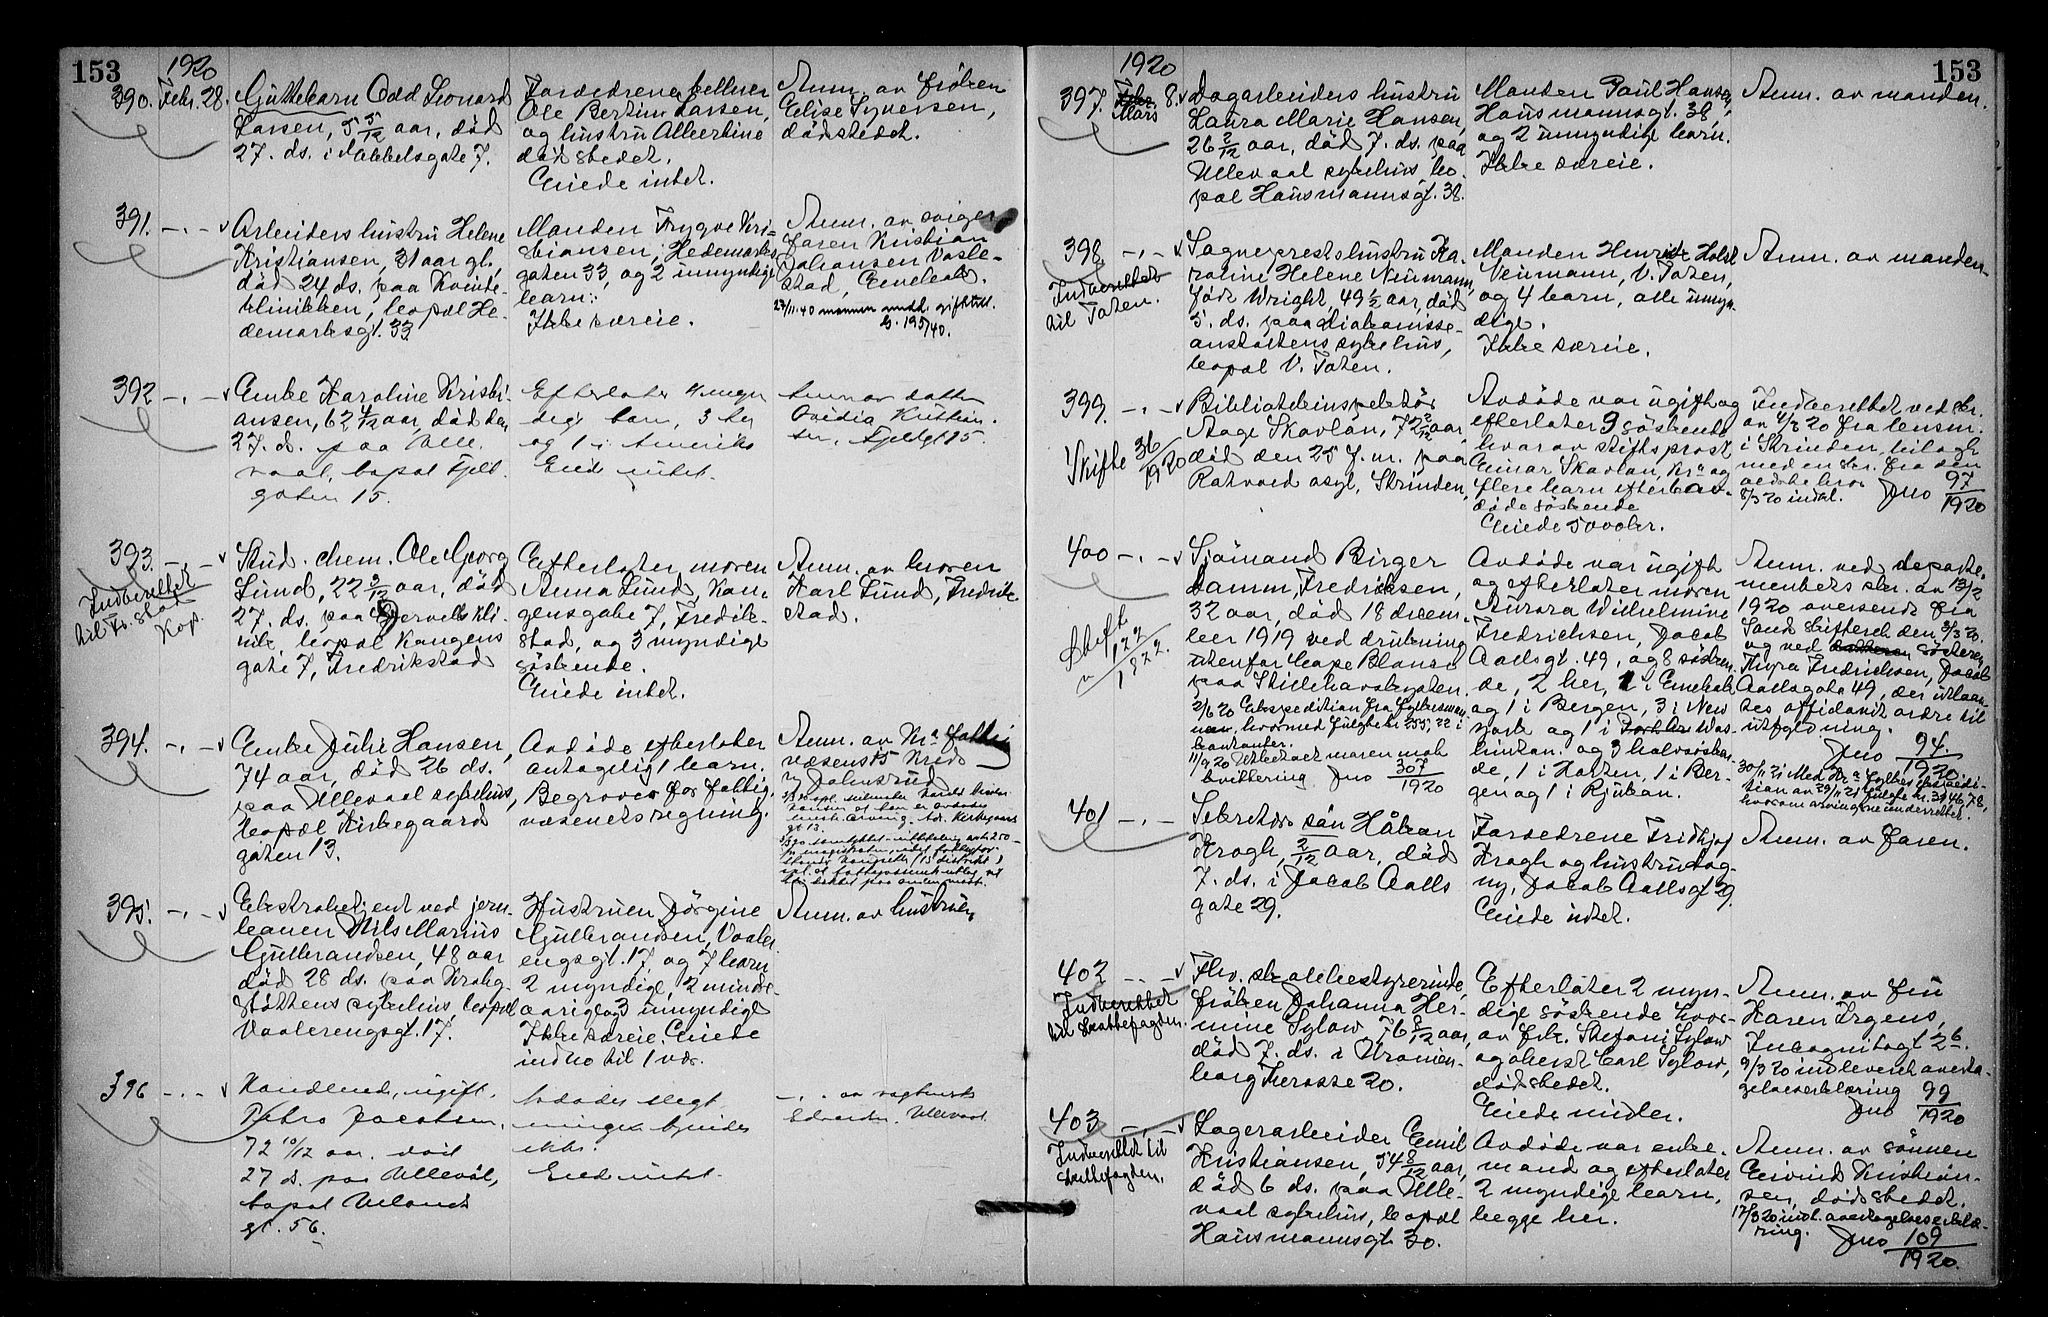 153
1920
390. Febr. 28.
Guttebarn Odd Leonard
Larsen, 5 5/12 aar, död
27. ds. i Nobbelsgate 7.
Forældrene fellner
Ole Bertin Larsen,
og hustru Albertine
dödsstedet.
Eiede intet.
Anm. av fröken
Elise Syversen,
dödsstedet.
391. -.-
Arbeiders hustru Helene
Kristiansen, 31 aar gl.,
död 24 ds. paa Kvinde-
klinikken, bopæl He-
demarksgt. 33.
Manden Trygve Kri-
stiansen, Hedemarks-
gaten 33, og 2 umyndige
barn:
Ikke særeie.
Anm. av sviger-
faren Kristian
Johansen
Enebak.
27/11.40 mannen medd. giftetill.
b. 195/40.
392 -.-
Enke Karoline Kristi-
ansen, 62 4/12 aar, död den
27. d. paa Ulle-
vaal, bopæl Fjeld-
gaten 15.
Efterlater 4 myn-
dige barn, 3 her
og 1 i Amerika
Eied intet.
Anm av datter
Ovidia
Fjeldgt 15.
393. -.-
Indberettet
til Fr. stad
Kop.
Stud. chem. Ole Georg
Lund, 22 3/12 aar, död
27. ds. paa Kli-
nik, bopæl Kongens
gate 7, Fredrikstad
Efterlater moren
Anna Lund, Kon-
gensgate 7, Fredrik-
stad, og 3 myndige
söskende.
Eiede intet.
Anm. av broren
Karl Lund, Fredrik-
stad.
394. -.-
Enke Julie Hansen,
74 aar, död 26 ds.
paa Ullevaal sykehus,
bopæl Kirkegaard
gaten 13.
Avdöde efterlater
antagelig 1 barn.
Begraves for fattig-
væsenets regning.
Anm. av Kra fattig
væsens 15 Kreds
v/
395. -.-
Ekstrabetjent ved jern-
banen Nils Marius
Gulbrandsen, 48 aar
död 28 ds. paa Krohg-
stöttens sykehus, bopæl
Vaalerengsgt. 17.
Hustruen Jörgine
Gulbrandsen, Vaaler-
engsgt. 17 og 7 barn
2 myndige, 2 minder-
aarige og 3 umyndige
Ikke særeie. Eiede
indbo til
Anm. av hustruen
396 -.-
Handlend, ugift,
Petra Jacobsen,
72 10/12 aar. död
27 d. paa Ullevål,
bopæl Uelands
gt. 56.
Avdödes slegt
kjendes
ikke.
Eied intet.
-.- av vagtmester
Ullevaal.
153
1920
397. Mars 8.
Dagarbeiders hustru
Laura Marie Hansen,
26 2/12 aar, död 7. ds. paa
Ullevaal sykehus, bo-
pæl Hausmannsgt. 38.
Manden Paul Hansen,
Hausmannsgt. 38,
og 2 umyndige barn.
Ikke særeie.
Anm. av manden.
398 -.-
Indberettet
til Toten.
Sogneprests hustru Ka-
roline Helene Neumann,
födt Wright, 49 1/2 aar, död
5. ds. paa diakonisse-
anstaltens sykehus,
bopæl V. Toten.
Manden Henrik Holst
Neumann, V. Toten,
og 4 barn, alle umyn-
dige.
Ikke særeie.
Anm. av manden
399. -.-
Skifte 36/1920
Biblioteksinspektör
Aage Skavlan, 72 2/12 aar,
död den 25 f. m. paa
Rotvold asyl, Strinden,
Avdöde var ugift og
efterlater 9 söskende
hvorav stiftsprost
Einar Skavlan, Kra og
flere barn efter av-
döde söskende
Eiede 5000 kr.
Indberettet ved skr.
av 4/3 20 fra lensm.
i Strinden, bilagt
med en skr. fra den
8/3 20 indkl.
Jno 97/1920
400 -.-
Sjömand Birger
Damm Fredriksen,
32 aar, död 18 decem-
ber 1919 ved drukning
utenfor Cape Blanco
paa
2/6 20 Ekspedition fra Fylkesman-
nen, hvorved fulgte kr. 255,22 i
kontanter.
11/9 20 Utbetalt moren mot
kvittering Jno 307/1920
Avdöde var ugift
og efterlater moren
Aurora Wilhelmine
Fredrichsen, Jacob
Aallsgt. 49, og 8 sösken-
de, 2 her, 1 i Enebak
og 1 i Bergen, 3 i New
York og 1 i Was-
hinton. og 3 halvsösken-
de, 1 i Horten, 1 i Ber-
gen og 1 i Rjukan.
Anm. ved departe-
mentets skr. av 13/2
1920 oversendt fra
Sand skifteret den 3/3 20.
og ved sösteren
Thyra Fredrichsen, Jacob
Aallsgate 49, der utlaan-
tes affidavit ordre til
utfyldning.
Jno 94./1920.
401 -.-
Sekretær sön Håkon
Krogh, 2/12 aar, död
7. ds. i Jacob Aalls
gate 29.
Forældrene Fridtjof
Krogh og hustru Dag-
ny, Jacob Aallsgt 29.
Eiede intet.
Anm. av faren.
402 -.-
Indberettet
til Skattefogden.
Fhv. skolebestyrerinde,
fröken Johanna Her-
mine Sylow, 76 8/12 aar,
död 7. ds. i Uranien-
borg Terasse 20.
Efterlater 2 myn-
dige söskende hvor-
av frk. Stefani Sylow
og oberst Carl Sylow,
dödsstedet.
Eiede midler.
Anm. av fru
Karen Irgens,
Incognitogt 26.
9/3 20 indleveret overta-
gelseserklæring
Jno 99/1920
403 -.-
Indberettet til
skattefogden.
Lagerarbeider Emil
Kristiansen, 54 8/12 aar,
död 6 ds. paa Ulle-
vaal sykehus, bopæl
Hausmannsgt 30.
Avdöde var enke-
mand og efterlater
2 myndige barn,
begge her.
Anm. av sönnen
Eivind Kristian-
sen, dödsstedet.
17/3 20 indl. overtagelseserklæ-
ring. Jno 109/1920.